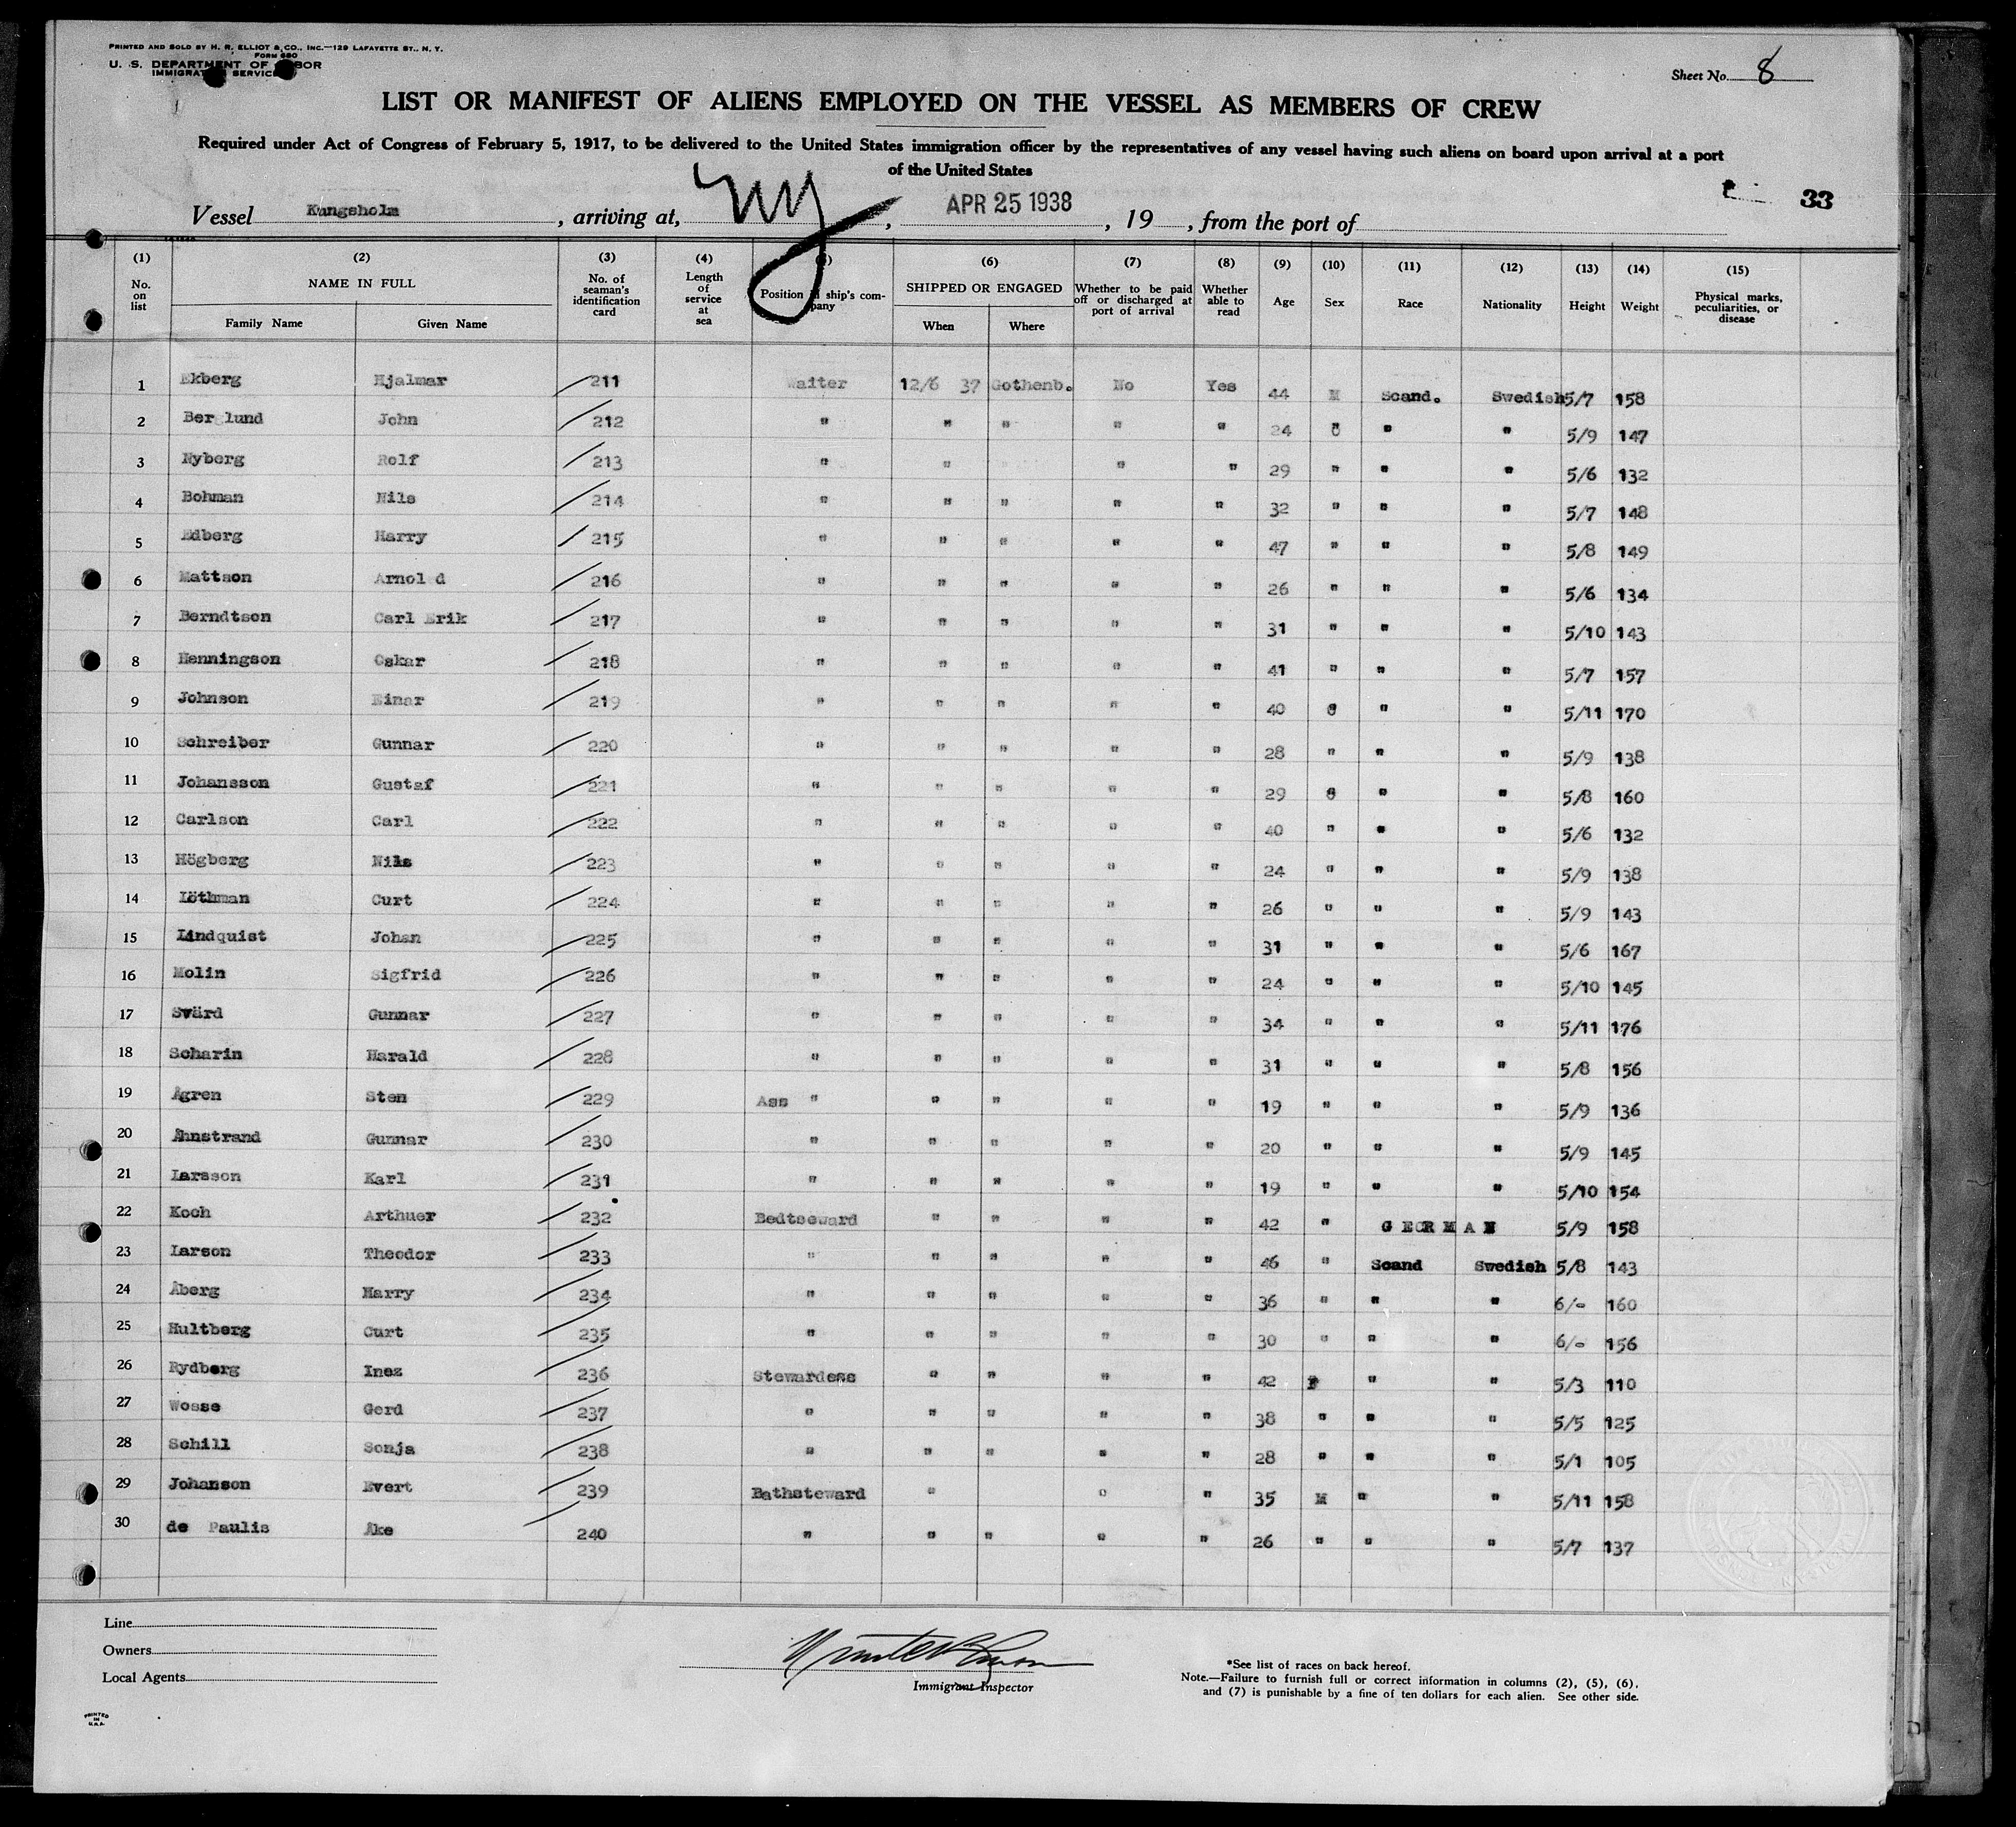 PRINTED AND SOLD BY H. R. ELLIOT & CO., INC.—129 LAFAYETTE ST., N. Y.
FORM 680
U. S. DEPARTMENT OF LABOR
IMMIGRATION SERVICE
Sheet No. 8
LIST OR MANIFEST OF ALIENS EMPLOYED ON THE VESSEL AS MEMBERS OF CREW
Required under Act of Congress of February 5, 1917, to be delivered to the United States immigration officer by the representatives of any vessel having such aliens on board upon arrival at a port
of the United States
33
Vessel Kungsholm, arriving at, NY, APR 25 1938, 19 , from the port of
(1) (2) (3) (4) (5) (6) (7) (8) (9) (10) (11) (12) (13) (14) (15)
No. on list NAME IN FULL No. of seaman's identification card Length of service at sea Position in ship's company SHIPPED OR ENGAGED Whether to be paid off or discharged at port of arrival Whether able to read Age Sex Race Nationality Height Weight Physical marks, peculiarities, or disease
Family Name Given Name When Where
1 Ekberg Hjalmar 211 Waiter 12/6 37 Gothenb. No Yes 44 M Scand. Swedish 5/7 158
2 Berglund John 212 " " " " " 24 " " " 5/9 147
3 Nyberg Rolf 213 " " " " 29 " " " 5/6 132
4 Bohman Nils 214 " " " " " 32 " " " 5/7 148
5 Edberg Harry 215 " " " " " 47 " " " 5/8 149
6 Mattson Arnold 216 " " " " " 26 " " " 5/6 134
7 Berndtson Carl Erik 217 " " " " " 31 " " " 5/10 143
8 Henningson Oskar 218 " " " " " 41 " " " 5/7 157
9 Johnson Einar 219 " " " " " 40 " " " 5/11 170
10 Schreiber Gunnar 220 " " " " " 28 " " " 5/9 138
11 Johansson Gustaf 221 " " " " " 29 " " " 5/8 160
12 Carlson Carl 222 " " " " " 40 " " " 5/6 132
13 Högberg Nils 223 " " " " " 24 " " " 5/9 138
14 Löthman Curt 224 " " " " " 26 " " " 5/9 143
15 Lindquist Johan 225 " " " " " 31 " " " 5/6 167
16 Molin Sigfrid 226 " " " " " 24 " " " 5/10 145
17 Svärd Gunnar 227 " " " " " 34 " " " 5/11 176
18 Scharin Harald 228 " " " " " 31 " " " 5/8 156
19 Ågren Sten 229 Ass " " " " " 19 " " " 5/9 136
20 Åhnstrand Gunnar 230 " " " " " 20 " " " 5/9 145
21 Larsson Karl 231 " " " " " 19 " " " 5/10 154
22 Koch Arthuer 232 Bedtseward " " " " 42 " GERMAN 5/9 158
23 Larson Theodor 233 " " " " " 46 " Scand Swedish 5/8 143
24 Åberg Harry 234 " " " " " 36 " " " 6/- 160
25 Hultberg Curt 235 " " " " " 30 " " " 6/- 156
26 Rydberg Inez 236 Stewardess " " " " 42 F " " 5/3 110
27 Wosse Gerd 237 " " " " " 38 " " " 5/5 125
28 Schill Sonja 238 " " " " " 28 " " " 5/1 105
29 Johanson Evert 239 Bathsteward " " " " 35 M " " 5/11 158
30 de Paulis Åke 240 " " " " " 26 " " " 5/7 137
Line
Owners
Local Agents
Immigrant Inspector
*See list of races on back hereof.
Note.—Failure to furnish full or correct information in columns (2), (5), (6),
and (7) is punishable by a fine of ten dollars for each alien. See other side.
PRINTED
IN
U.S.A.